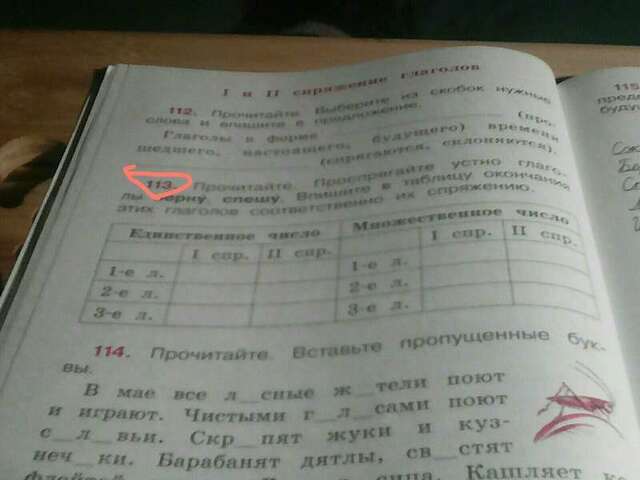 I и II спряжение глаголов
112. Прочитайте. Выберите из скобок нужные
слова и впишите в предложение.
Глаголы в форме (про-
шедшего, настоящего, будущего) времени
(спрягаются, склоняются).
113. Прочитайте. Проспрягайте устно глаго-
лы верну, спешу. Впишите в таблицу окончания
этих глаголов соответственно их спряжению.
Единственное число Множественное число
I спр. II спр. I спр. II спр.
1-е л. 1-е л.
2-е л. 2-е л.
3-е л. 3-е л.
114. Прочитайте. Вставьте пропущенные бук-
вы.
В мае все л_сные ж_тели поют
и играют. Чистыми г_л_сами поют
с_л_вьи. Скр_пят жуки и куз-
неч_ки. Барабанят дятлы, св_стят
Кашляет
115